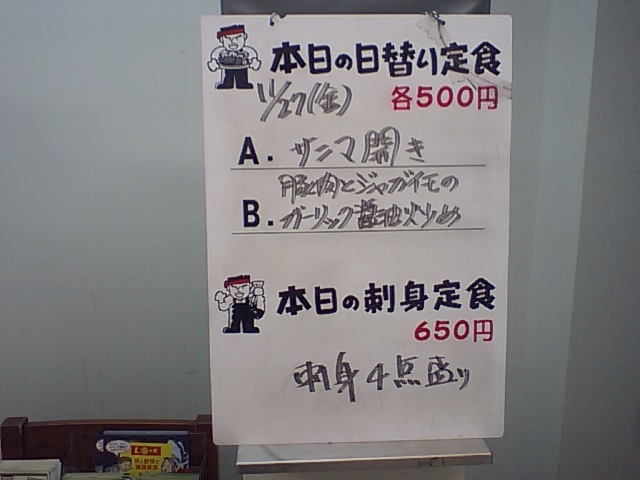 本日の日替り定食
11/27(金) 各500円
A. サンマ開き
豚肉とジャガイモの
B. ガーリック醤油炒め
本日の刺身定食
650円
刺身4点盛り